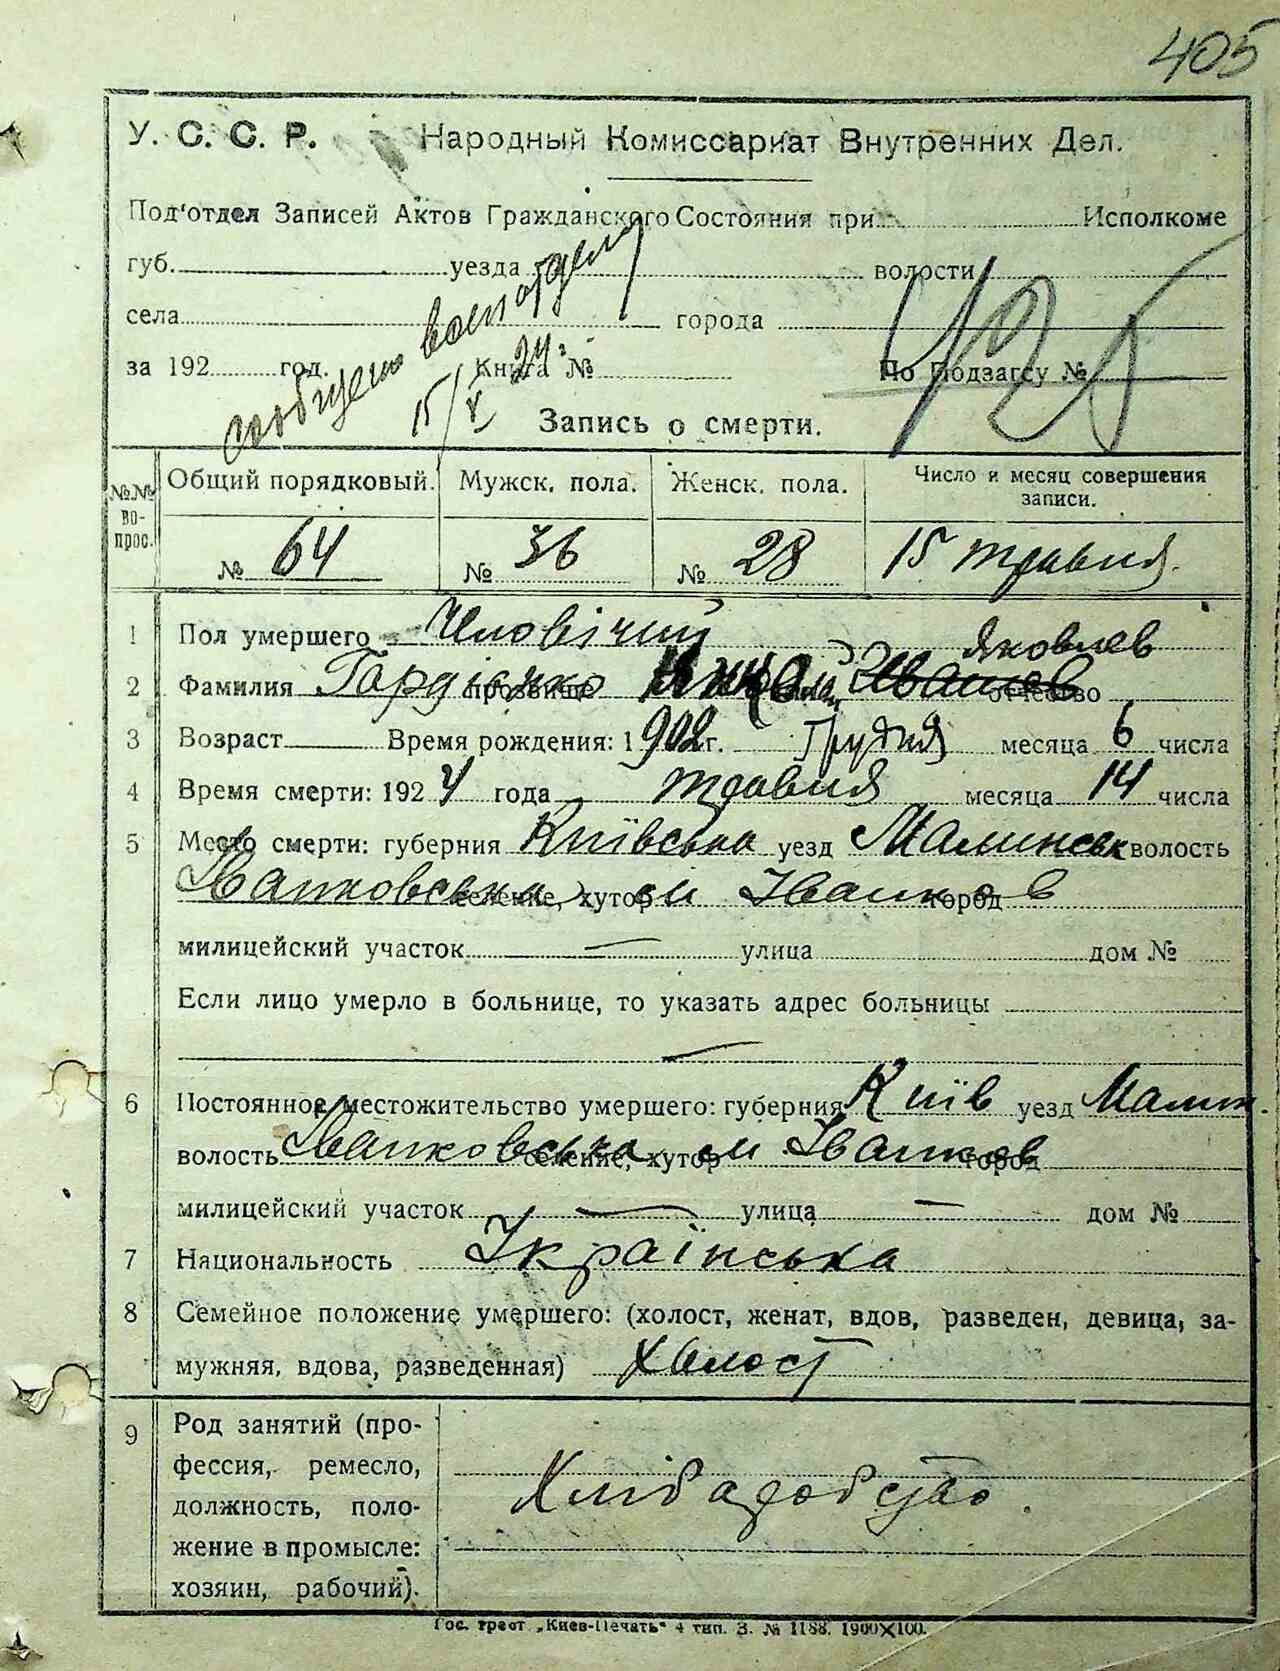 405
У. С. С. Р. Народный Комиссариат Внутренних Дел.
Под'отдел Записей Актов Гражданского Состояния при Исполкоме
губ. уезда волости
села города
за 192 год. Книга № По Подзагсу № 125
сообщено воен отделу
15/V 24 г.
Запись о смерти.
№№ во- прос. Общий порядковый. Мужск. пола. Женск. пола. Число и месяц совершения записи.
№ 64 № 36 № 28 15 травня.
1 Пол умершего Чловічий
Яковлев
2 Фамилия Гордієнко прозвище отчество
3 Возраст Время рождения: 1902 г. Грудня месяца 6 числа
4 Время смерти: 1924 года травня месяца 14 числа
5 Место смерти: губерния Київська уезд Малинськ волость
Іванковська селение, хутор м Іванков город
милицейский участок — улица дом №
Если лицо умерло в больнице, то указать адрес больницы
—
6 Постоянное местожительство умершего: губерния Київ уезд Малин.
волость Іванковська селение, хутор м Іванков город
милицейский участок — улица — дом №
7 Национальность Українська
8 Семейное положение умершего: (холост, женат, вдов, разведен, девица, за-
мужняя, вдова, разведенная) холост
9 Род занятий (про-
фессия, ремесло,
должность, поло-
жение в промысле:
хозяин, рабочий).
Хлібаробство.
Гос. трест „Киев-Печать" 4 тип. З. № 1188. 1900×100.